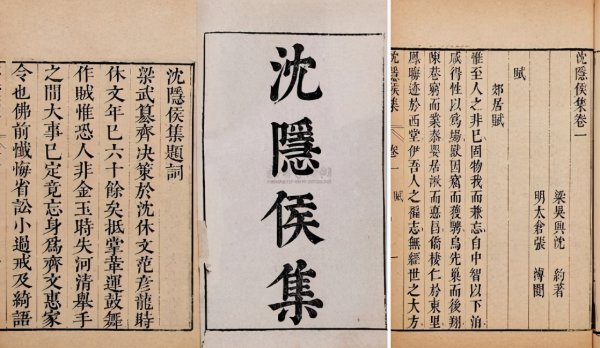 沈隱侯集題詞
梁武纂齊決策於沈休文范彥龍時
休文年已六十餘矣抵掌革運鼓舞
作賊惟恐人非金玉時失河清舉手
之間大事已定竟忘身爲齊文惠家
令也佛前懺悔省訟小過戒及綺語
沈隱侯集
沈隱侯集卷一
梁吳興沈 約著
明太倉張 溥閱
賦
郊居賦
惟至人之非已固物我而兼忘自中智以下洎
咸得性以爲場獸因窟而獲騁鳥先巢而後翔
陳巷窮而業泰嬰居湫而德昌僑棲仁於東里
鳳晦迹於西堂伊吾人之褊志無經世之大方
沈隱侯集 卷一 賦